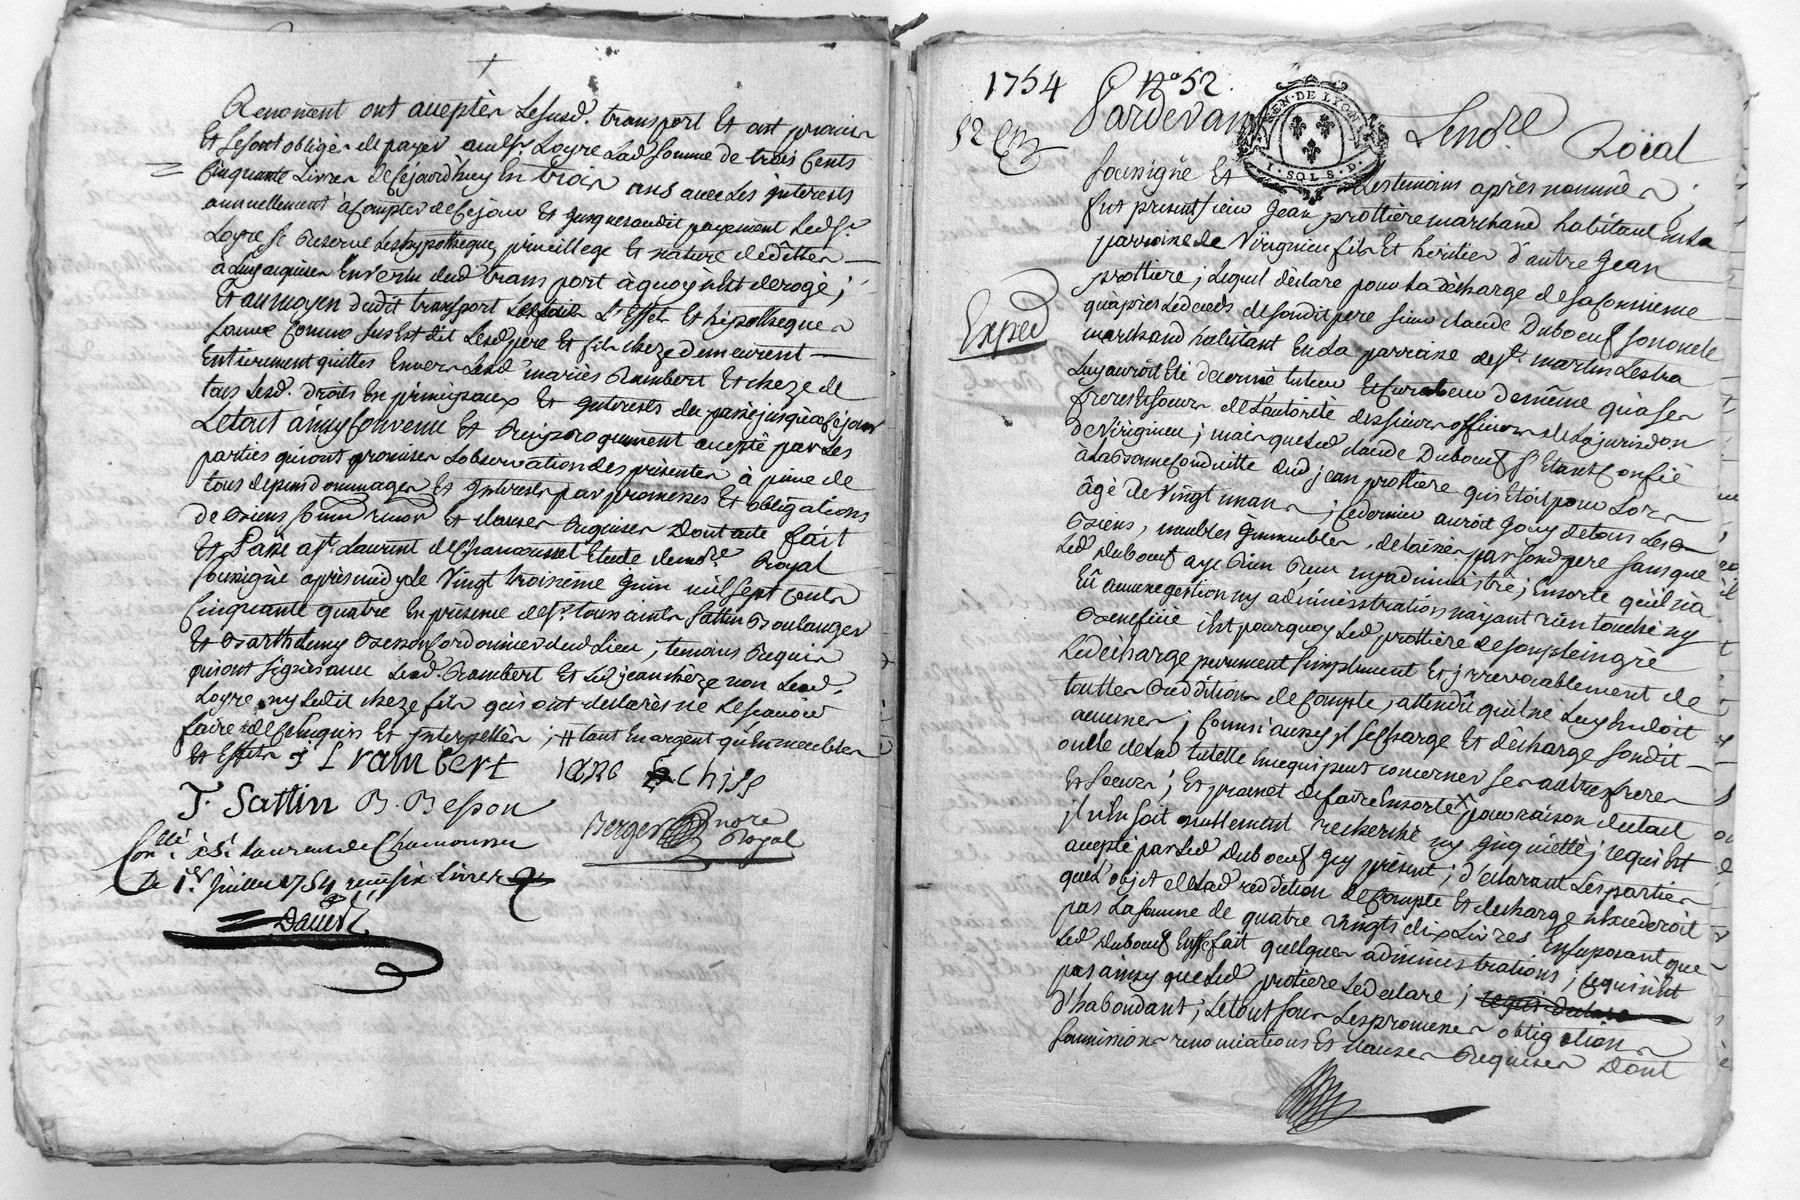 Renoment ont acceptèr Lesusd. transport Et ont promis
Et se sont obligés de payer audsr Loyre Lad somme de trois Cents
Cinquante Livres de cejourd'huy En trois ans avec Les jnterests
annuellement a Compter de Cejour Et jusques audit payement Ledsr.
Loyre se Reserve Les hypotheques, privillege Et nature de dette
à Luy acquises En vertu dud transport à quoy n'est derogé ;
Et au moyen dudit transport L'Effet Et hipotheques
sauve Comme sus Est dit Lesd père Et fils cheze demeurent
Entierement quittes Envers Lesd mariés Rambert Et cheze de
tous Lesd. droits En principaux Et jnterests du passé jusqu'à Cejour
Le tout ainsy Convenu Et Reciproquement accepté par Les
parties qui ont promises L'observation des presentes à peine de
tous depens dommages Et jnterests par promesses Et obligations
de Biens soumissions et clauses Requises Dont acte fait
Et Passé a St. Laurent de Chamousset Etude dud nore Royal
soussigné après midy le Vingt troisième juin mil sept cents
Cinquante quatre En présence de sr. toussaints Sattin Boulanger
Et Barthelemy Besson Cordonnier dud Lieu, temoins Requis
qui ont signés avec Lesd. Rambert Et Led jean chèze non Led.
Loyre ny Ledit cheze fils qui ont declarés ne Le scavoir
faire de Ce Enquis Et jnterpellés ; # tant En argent qu'En meubles
Et Effets J L rambert IARC Chiss
T. Sattin B. Besson
Berger nore Royal
Conllé. à St. Laurent de Chamousset
Le 1er Juillet 1754 reçu six Livres
David
1754 No 52.
52 Pardevant Le no.re Roïal
GEN. DE LYON
1. SOLS. D.
soussigné Et Les temoins après nommés ;
fut present sieur Jean prottiere marchand habitant En La
parroisse de Virigneu fils Et heritier d'autre Jean
prottiere ; Lequel déclare pour La décharge de sa Conscience
Exped
qu'après Le deceds de sondit pere sieur claude Duboeuf son oncle
marchand habitant En La parroisse de St. martin Lestra
Luy auroit Eté décerné tuteur Et Curateur de même qu'à ses
freres Et soeurs de L'autorité des sieurs officiers de La jurisdon
de Virigneu ; mais que Led claude Duboeuf s'Etant Confié
à La Bonne Conduitte dud jean prottiere qui Etoit pour Lors
âgé de Vingt un ans ; Ce dernier auroit jouy de tous Les
Biens, meubles jmmeubles, delaissés par sond pere sans que
Led Duboeuf aye Rien Reçu ny administré ; Ensorte qu'il n'a
Eû aucune gestion ny administration n'ayant rien touché ny
Beneficié ; c'est pourquoy Led prottiere de son plein gré
Le décharge purement simplement Et jrrevocablement de
touttes Redditions de Compte, attendû qu'il ne Luy En doit
aucunes ; Comme aussy il se Charge Et décharge sondit
oncle de Lad tutelle En ce qui peut concerner ses autres freres
Et soeurs ; Et promet de faire Ensorte X pour raison de Lad
il n'En soit nullement recherché ny jnquietté ; ce qui Est
accepté par Led Duboeuf jcy present ; déclarant Les parties
que L'objet de Lad reddition de Compte Et decharge n'Excederoit
pas La somme de quatre Vingts dix Livres En suposant que
Led Duboeuf Eusse fait quelques administrations ; ce qui n'est
pas ainsy que Led protiere Le declare ;
d'habondant ; Le tout sous Les promesses obligations
soumissions renonciations Et clauses Requises Dont